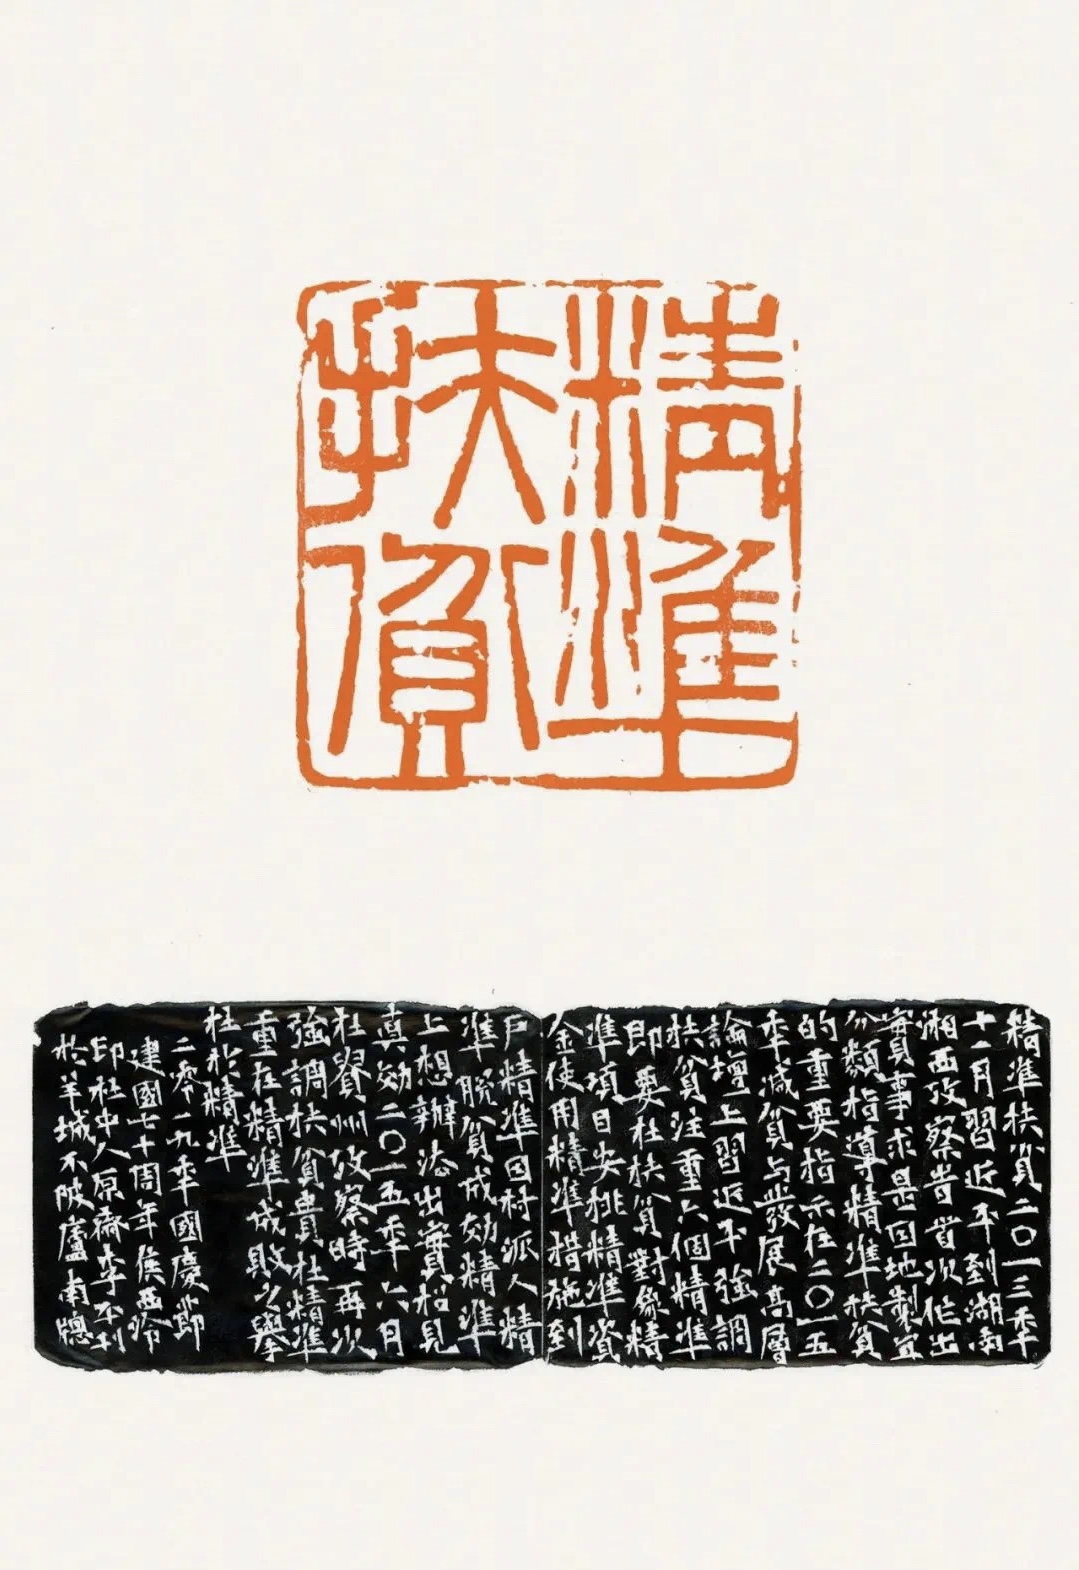 精準
扶貧
精準扶貧二〇一三年
十一月習近平到湖南
湘西攷察旹首次作出
實事求是因地製宜
分類指導精準扶貧
的重要指示在二〇一五
年減貧与發展高層
論壇上習近平強調
扶貧注重六個精準
即要在扶貧對像精
準項目安排精準資
金使用精準措施到
戶精準因村派人精
準脫貧成効精準
上想辦法出實招見
真効二〇一五年六月
在貴州攷察時再次
強調扶貧貴在精準
重在精準成敗之舉
在於精準
二零一九年國慶節
建國七十周年候西泠
印社中人原齋李刊
於羊城不陂廬南窗